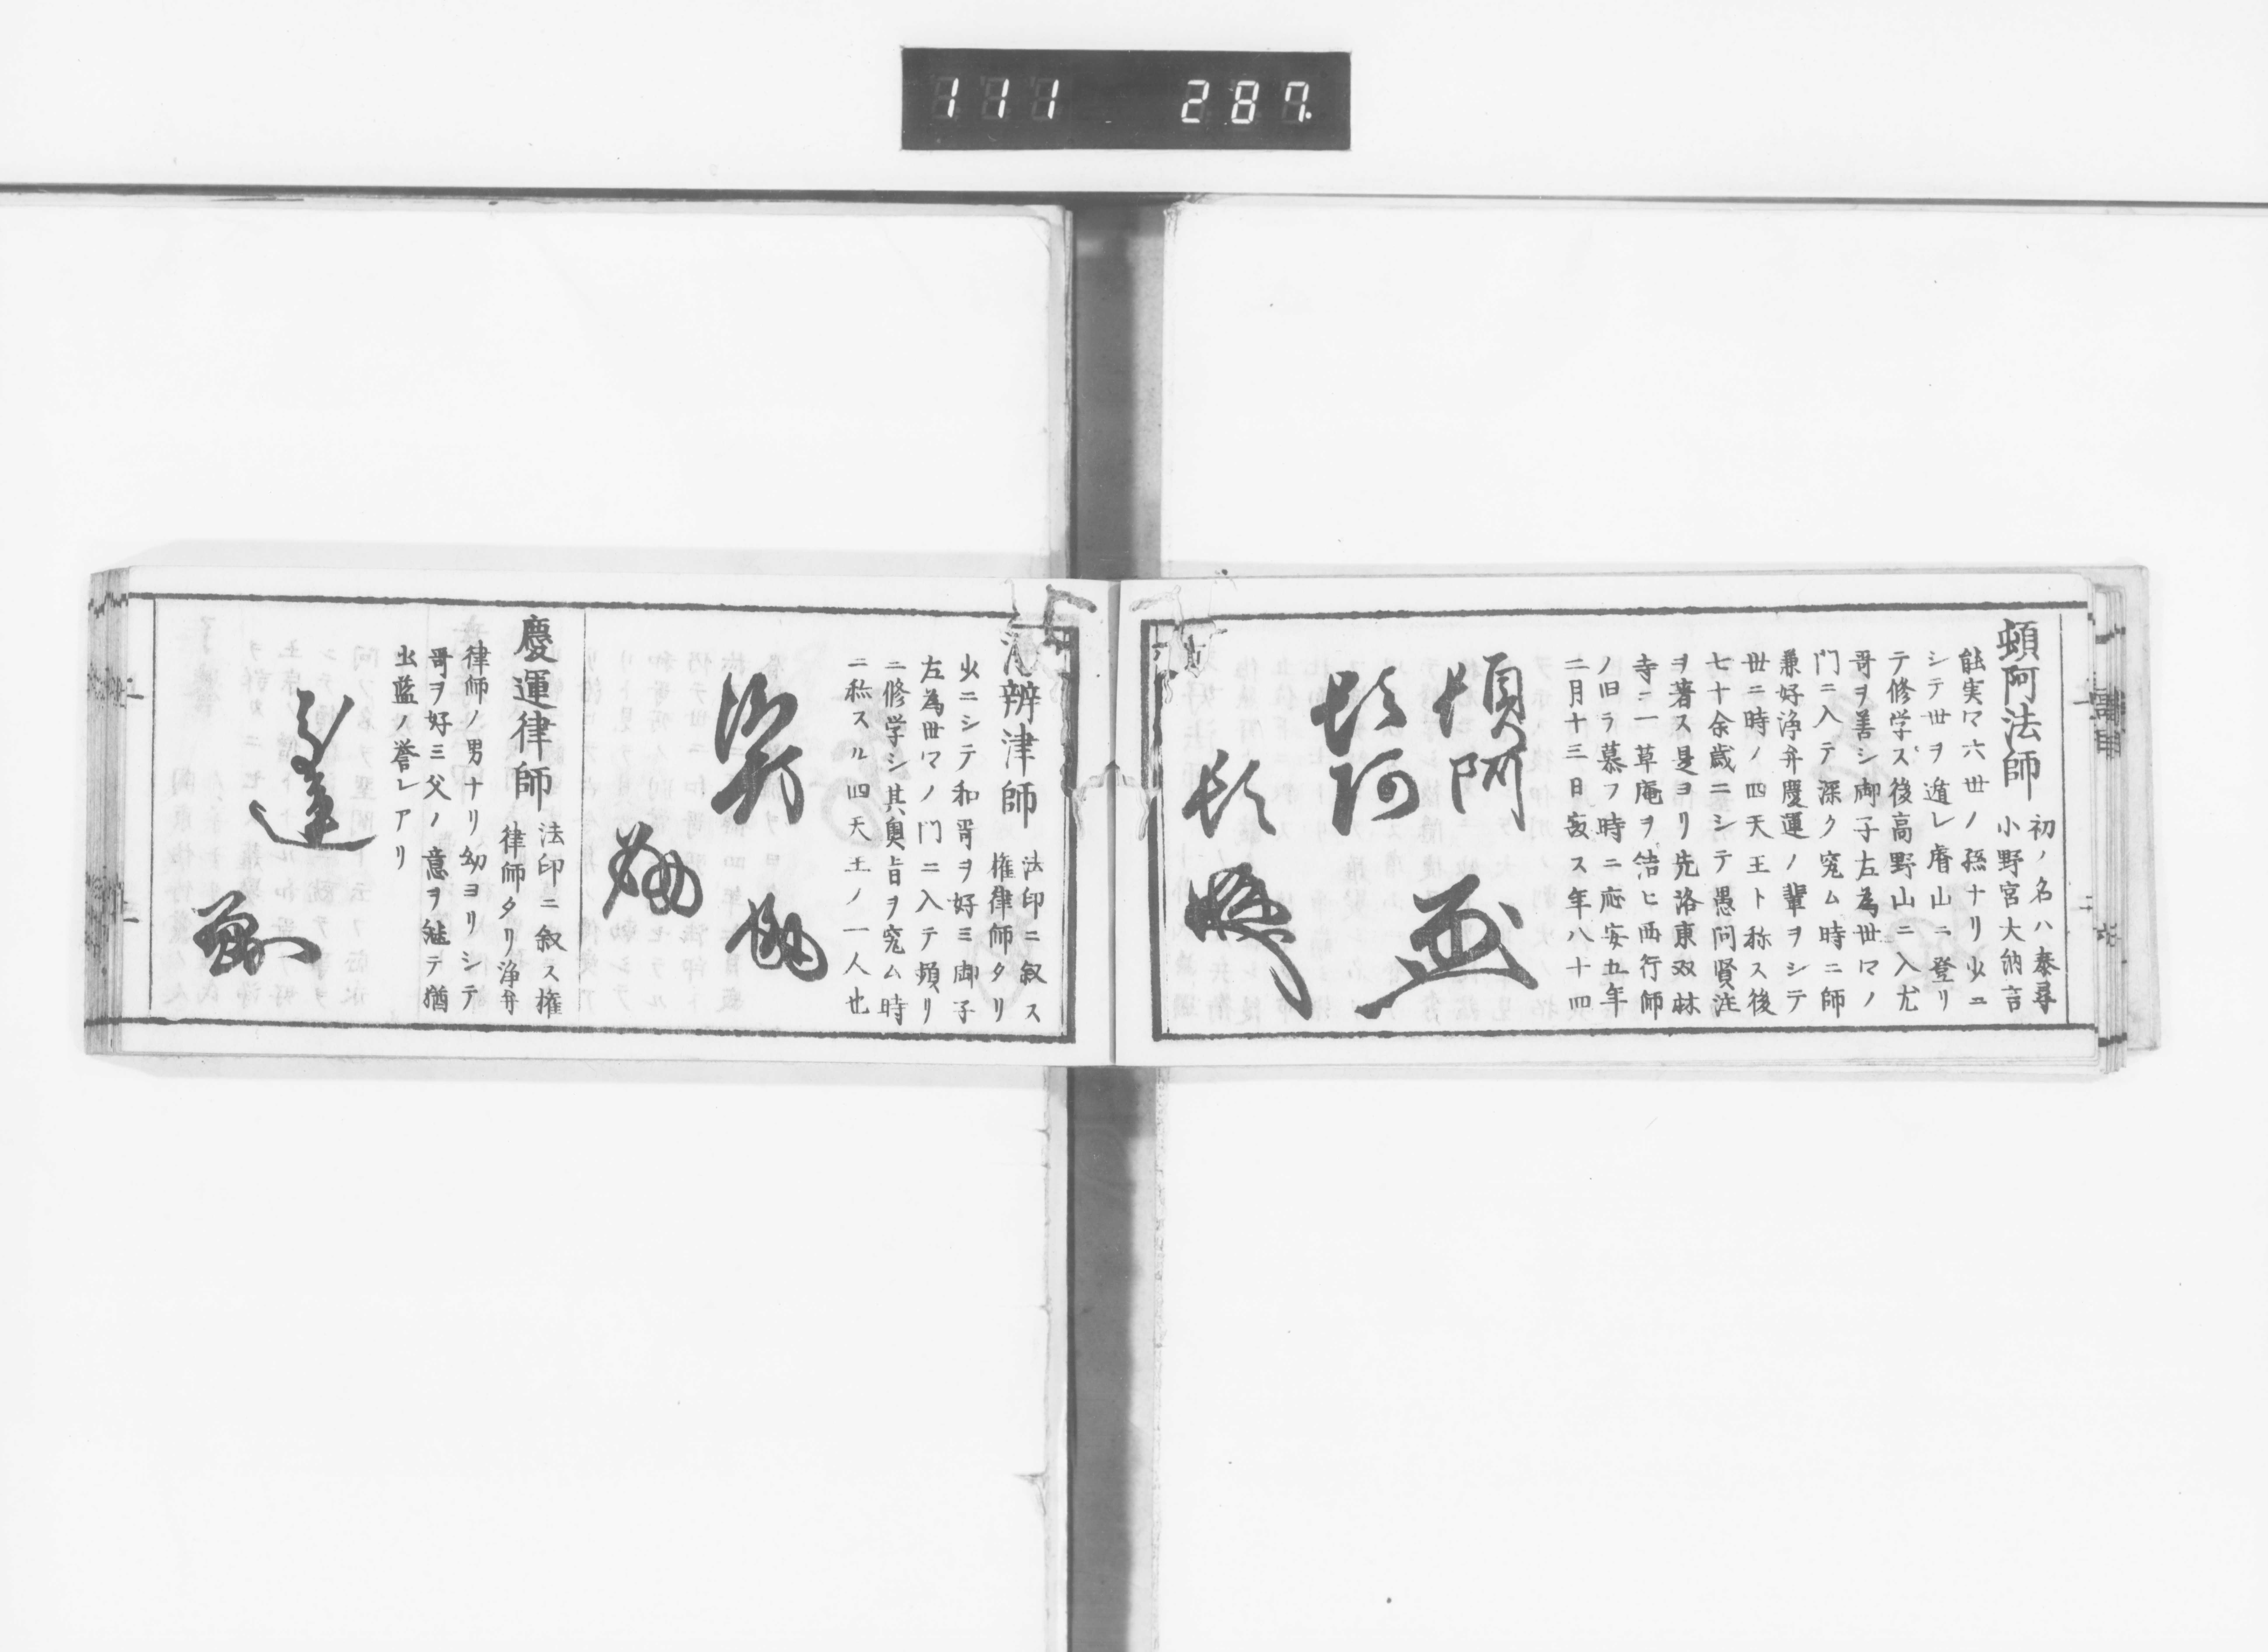 111 287.
頓阿法師 初ノ名ハ泰尋
小野宮大納言
能実マ六世ノ孫ナリ少ニ
シテ世ヲ遁レ唐山ニ登リ
テ修学ス後高野山ニ入尤
哥ヲ善シ御子左為世マノ
門ニ入テ深ク究ム時ニ師
兼好浄弁慶運ノ輩ヲシテ
世ニ時ノ四天王ト称ス後
七十余歳ニシテ愚問賢注
ヲ著ス是ヨリ先洛東双林
寺ニ一草庵ヲ結ヒ西行師
ノ旧ヲ慕フ時ニ応安五年
二月十三日寂ス年八十四
頓阿
頓阿
頓
浄辨律師 法印ニ叙ス
権律師タリ
少ニシテ和哥ヲ好ミ御子
左為世マノ門ニ入テ頻リ
ニ修学シ其奥旨ヲ究ム時
ニ称スル四天王ノ一人也
慶運律師 法印ニ叙ス権
律師タリ浄弁
律師ノ男ナリ幼ヨリシテ
哥ヲ好ミ父ノ意ヲ継テ猶
出藍ノ誉レアリ